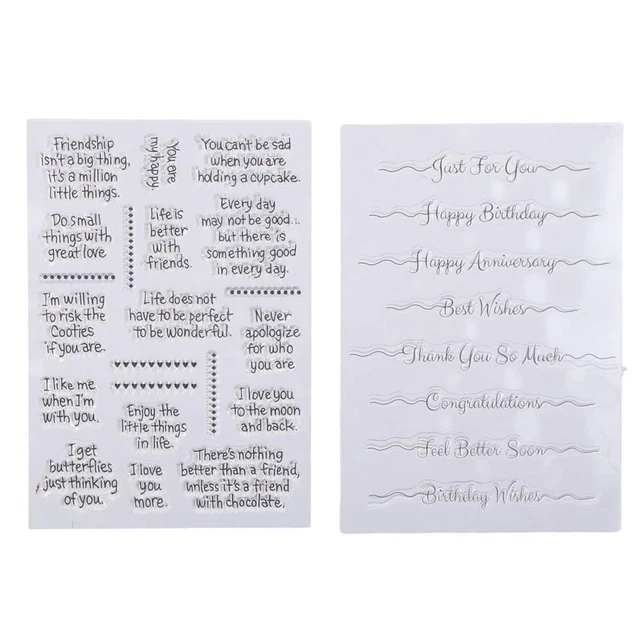 Friendship
isn't a big thing,
it's a million
little things.
You are
my happy.
You can't be sad
when you are
holding a cupcake.
Do small
things with
great love
Life is
better
with
friends.
Every day
may not be good...
but there is
something good
in every day.
I'm willing
to risk the
Cooties
if you are.
Life does not
have to be perfect
to be wonderful.
Never
apologize
for who
you are
I like me
when I'm
with you.
Enjoy the
little things
in life.
I love you
to the moon
and back.
I get
butterflies
just thinking
of you.
I love
you
more.
There's nothing
better than a friend,
unless it's a friend
with chocolate.
Just For You
Happy Birthday
Happy Anniversary
Best Wishes
Thank You So Much
Congratulations
Feel Better Soon
Birthday Wishes